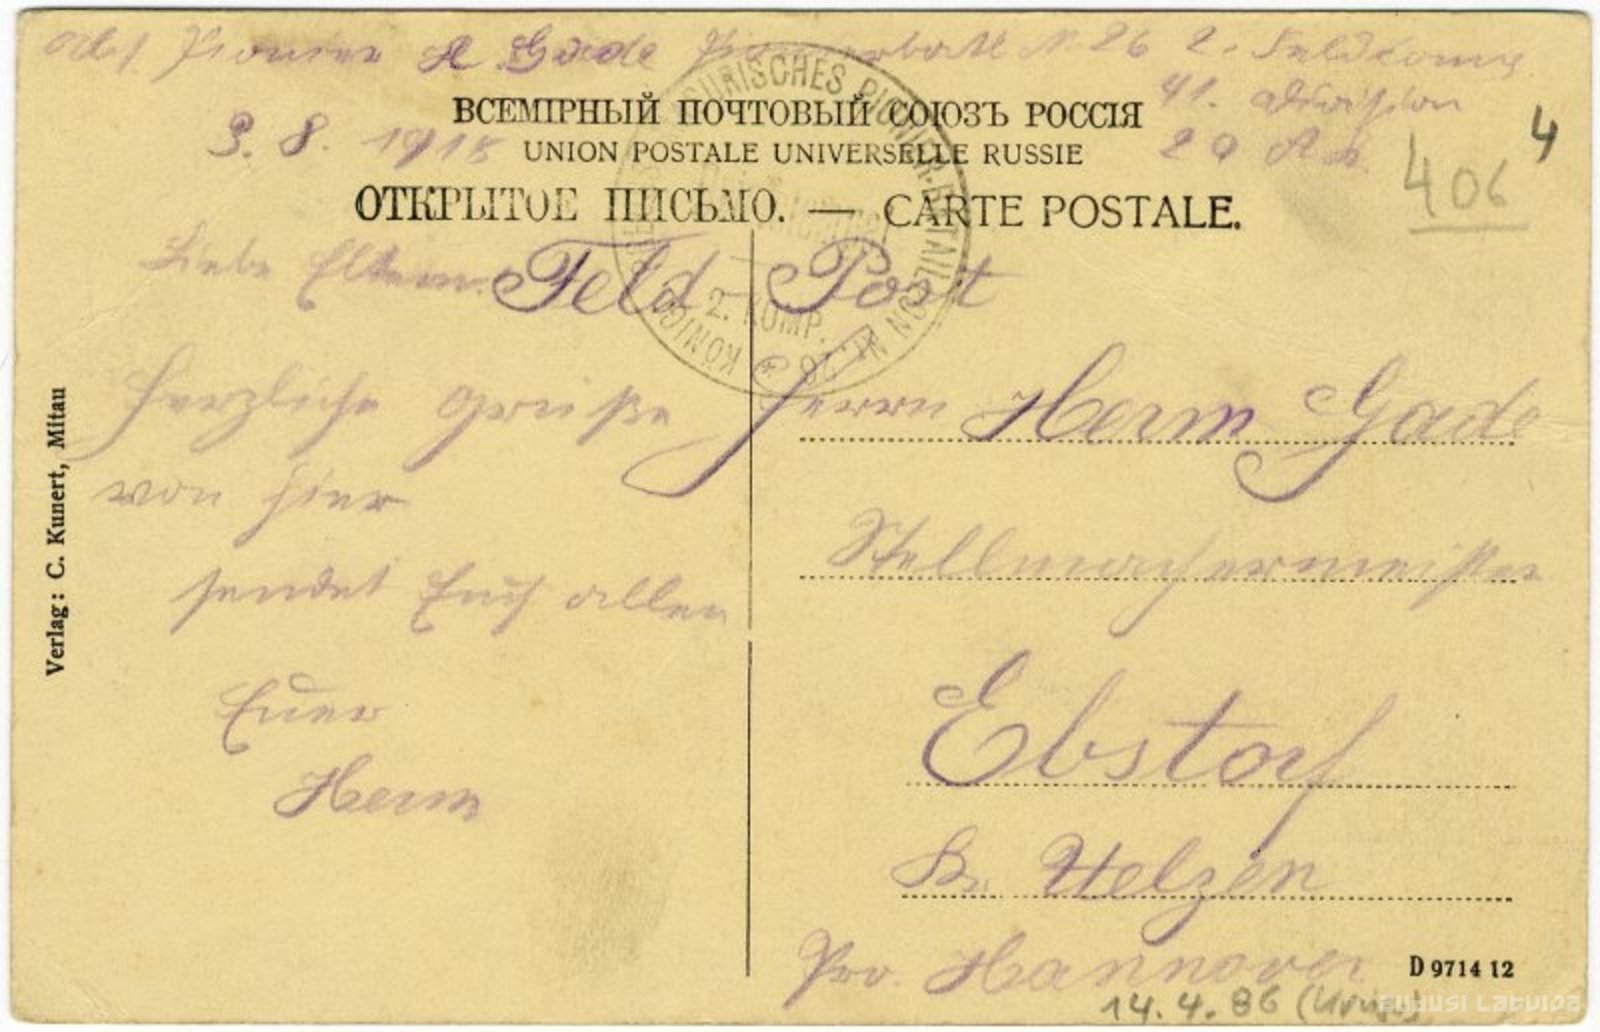 Abs. Pionier H Gade Pionierbatl N. 26 2. Feldkomp.
41. Division
3. 8. 1915
20 A.K.
4
406
ВСЕМІРНЫЙ ПОЧТОВЫЙ СОЮЗЪ РОССІЯ
UNION POSTALE UNIVERSELLE RUSSIE
ОТКРЫТОЕ ПИСЬМО. — CARTE POSTALE.
PIONIER-BATAILLON Nr. 26 * KÖNIGL.
2. KOMP.
Feld-Post
Liebe Eltern.
Herzliche Grüße
von hier
sendet Euch allen
Euer
Herm
Herrn Herm Gade
Stellmachermeister
Ebstorf
Kr. Uelzen
Prov. Hannover
Verlag: C. Kunert, Mitau
D 9714 12
14.4.86
ZUDUSI LATVIJA